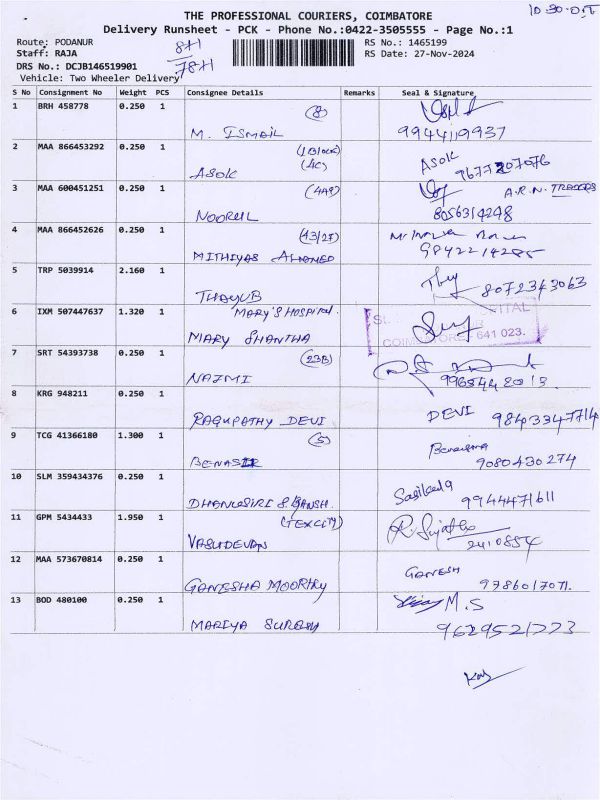 10-30
THE PROFESSIONAL COURIERS, COIMBATORE
Delivery Runsheet - PCK - Phone No.:0422-3505555 - Page No.:1
Route: PODANUR
RS No.: 1465199
Staff: RAJA
RS Date: 27-Nov-2024
DRS No.: DCJB146519901
Vehicle: Two Wheeler Delivery
S No Consignment No Weight PCS Consignee Details Remarks Seal & Signature
1 BRH 458778 0.250 1 (8)
M. ISMAIL 9944119937
2 MAA 866453292 0.250 1 (1 BLOCK)
(4C) ASOK
ASOK 9677207076
3 MAA 600451251 0.250 1 (4A9) A.R.N. TRADERS
NOORUL 8056314248
4 MAA 866452626 0.250 1 (43/27)
MITHIYAS AHAMED 9842214285
5 TRP 5039914 2.160 1
THAYUB 8072343063
6 IXM 507447637 1.320 1 MARY'S HOSPITAL.
MARY SHANTHA 641 023.
7 SRT 54393738 0.250 1 (23B)
NAZMI 9965442015
8 KRG 948211 0.250 1
RAGUPATHY DEVI DEVI 9843347714
9 TCG 41366180 1.300 1 (5)
BENASIR 9080430274
10 SLM 359434376 0.250 1
DHANUSIRI & 9944471611
11 GPM 5434433 1.950 1 (TEXCITY)
VASUDEVAN R. Sujatha
2410854
12 MAA 573670814 0.250 1 GANESH
GANESHA MOORTHY 9786017071.
13 BOD 480100 0.250 1 M.S
MARIYA SURESH 9629521773